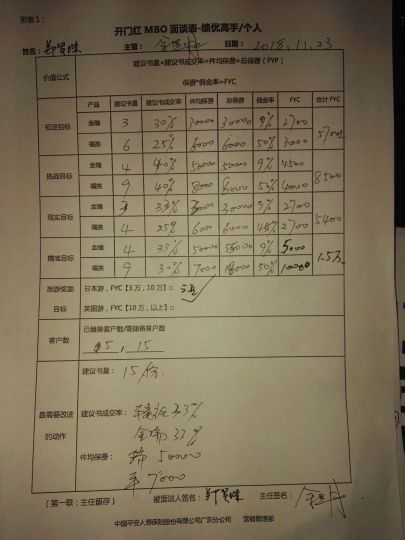 附表1：
开门红 MBO 面谈表-绩优高手/个人
姓名： 主管： 日期：2018.11.23
价值公式 建议书量×建议书成交率×件均保费=总保费（FYP）
保费*佣金率=FYC
产品 建议书量 建议书成交率 件均保费 总保费 佣金率 FYC 合计 FYC
初定目标 金瑞 3 30% 30000 30000 9% 2700
福类 6 25% 6000 6000 50% 3000
挑战目标 金瑞 4 40% 50000 50000 9% 4500 8500
福类 9 40% 8000 8000 50% 4000
现实目标 金瑞 3 33% 30000 30000 9% 2700 5400
福类 4 25% 6000 6000 45% 2700
精准目标 金瑞 4 33% 50000 9% 5000 1.5万
福类 9 30% 7000 18000 50% 10000
旅游奖励目标 日本游，FYC【3万，10万】□
英国游，FYC【10万，以上】□
客户数 已储备客户数/需储备客户数
15，15
最需要改进的动作
建议书量：15/份
建议书成交率： 33%
金瑞 33%
件均保费： 50000
7000
（第一联：主任留存） 被面谈人签名： 主任签名：
中国平安人寿保险股份有限公司广东分公司 营销管理部